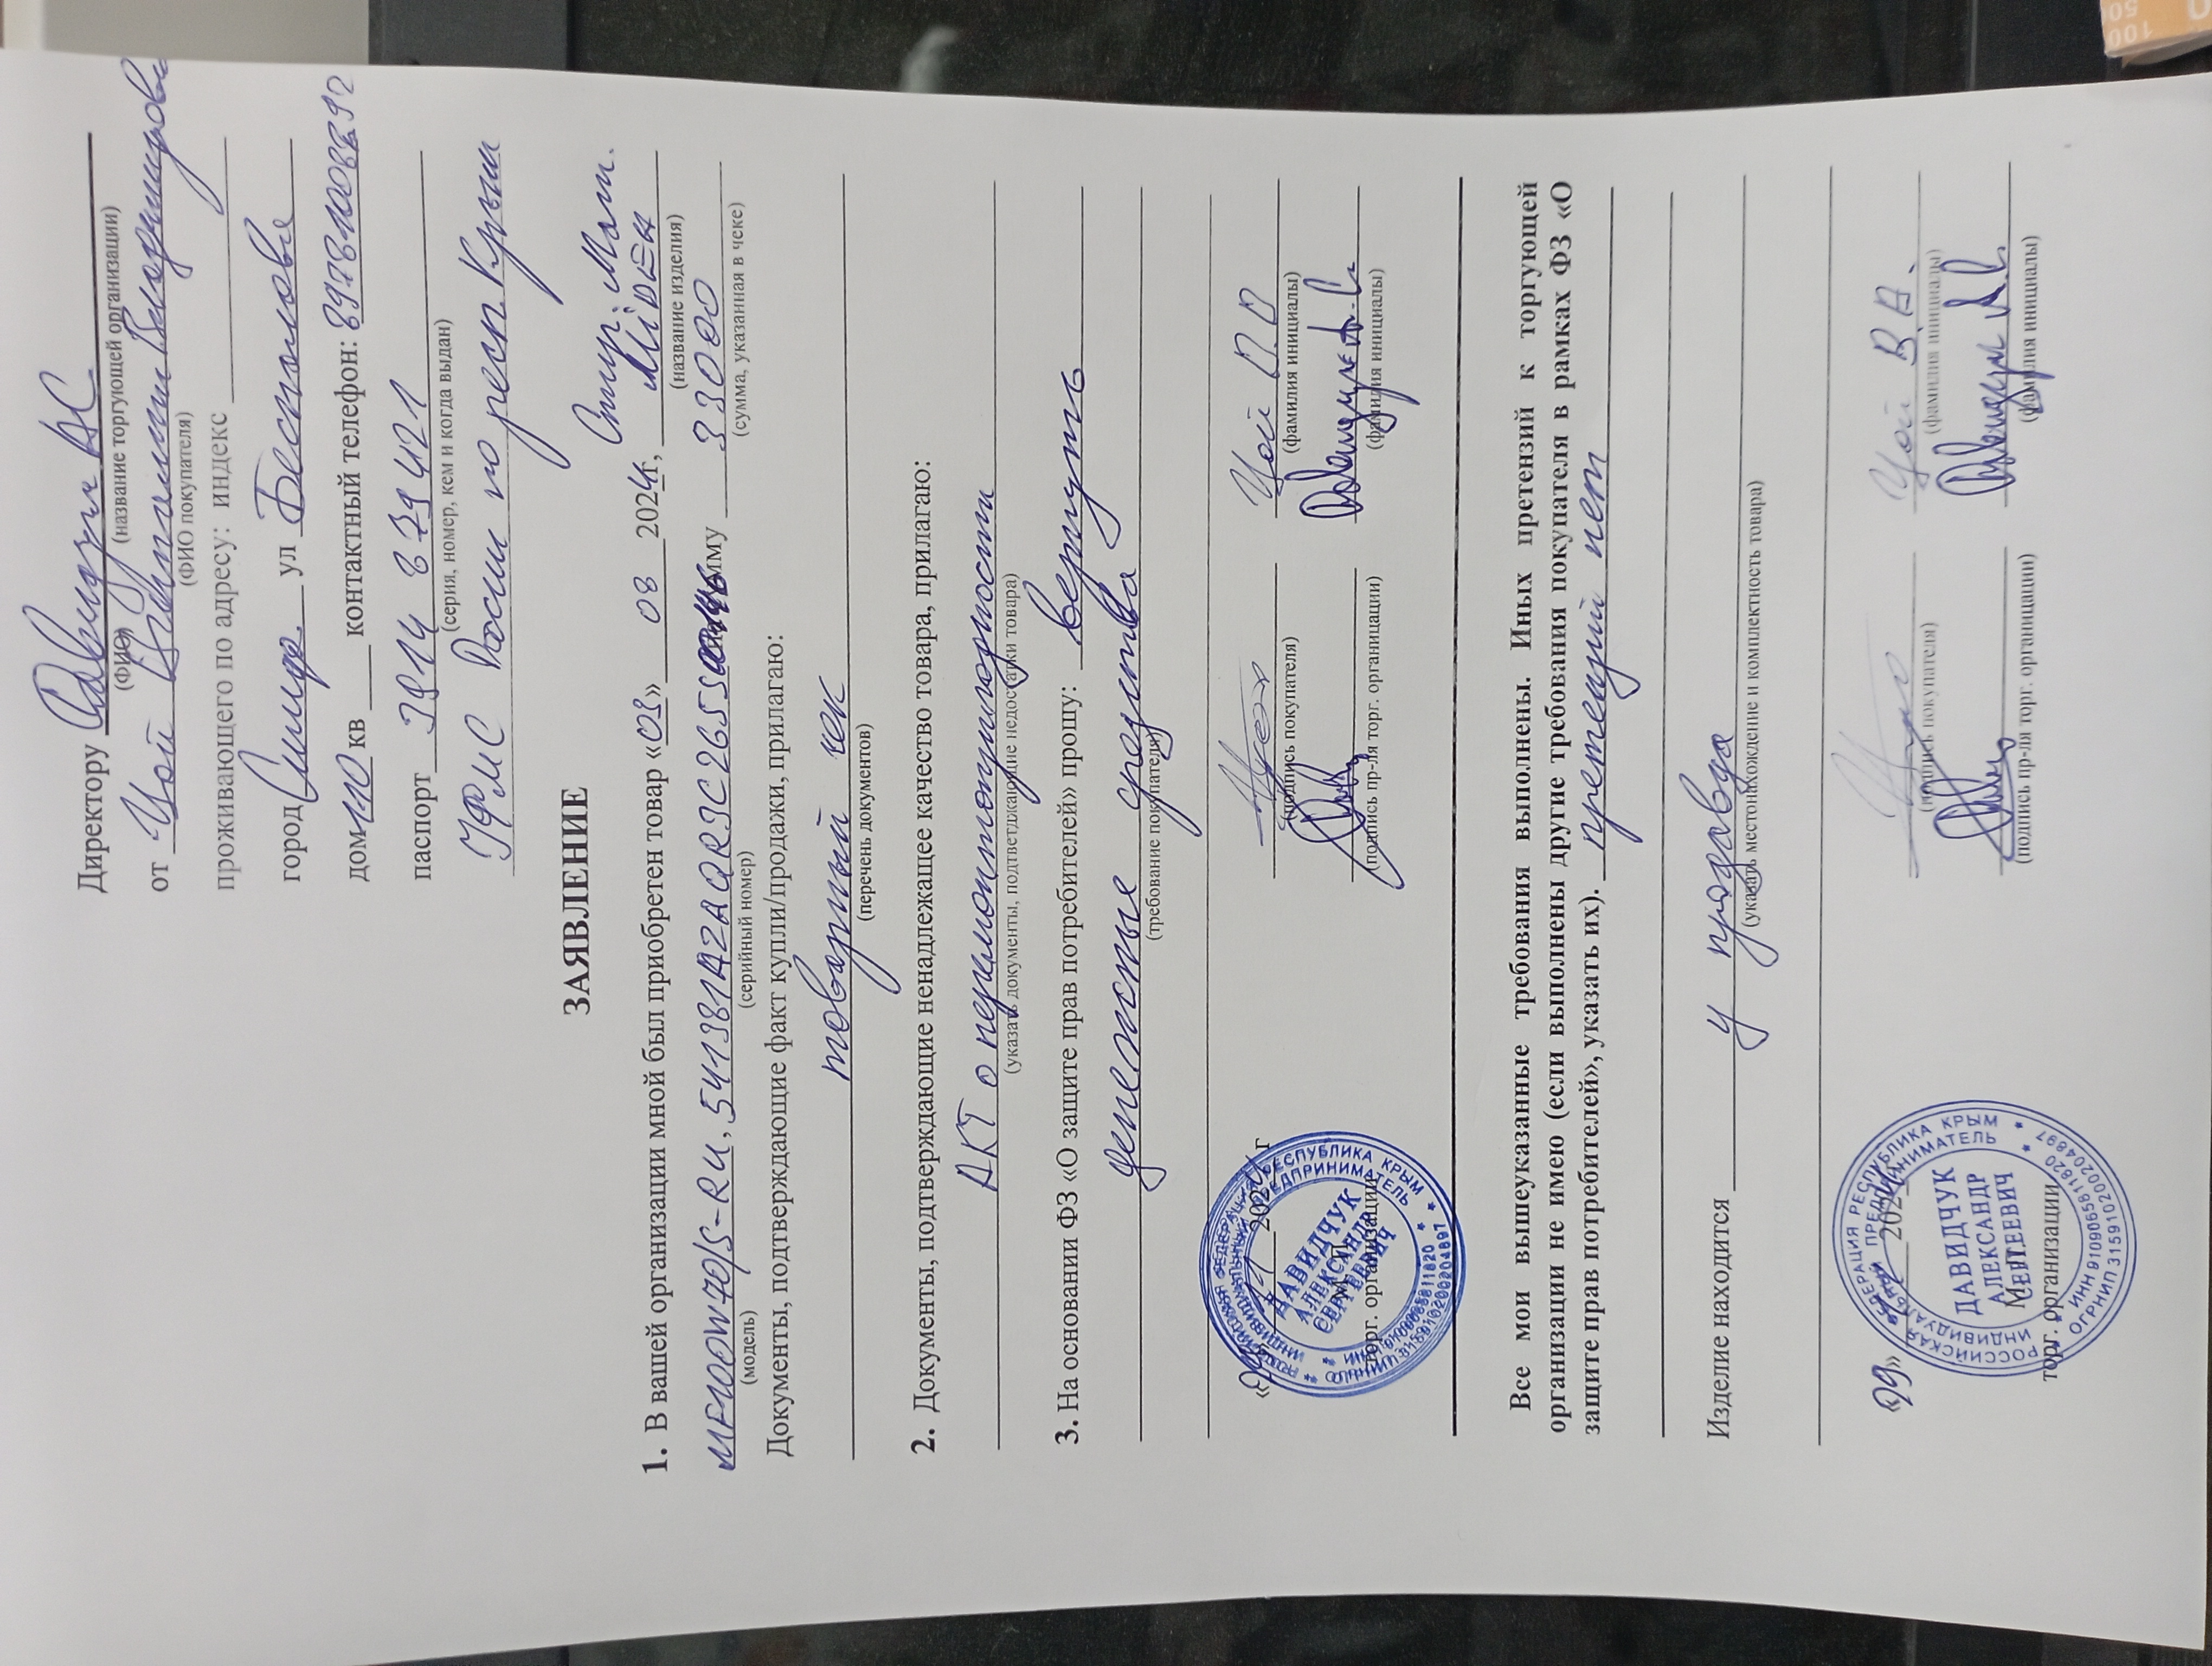 Директору Давидчук АС
(ФИО) (название торгующей организации)
от Цой
(ФИО покупателя)
проживающего по адресу: индекс
город Симф. ул
дом 110 кв контактный телефон:
паспорт 3914 879421
(серия, номер, кем и когда выдан)
УФМС России по респ. Крым
ЗАЯВЛЕНИЕ
Стир. Маш.
1. В вашей организации мной был приобретен товар «03» 08 2024г, MiDEA
(название изделия)
MF100W70/S-RU, на сумму 33000
(модель) (серийный номер) (сумма, указанная в чеке)
Документы, подтверждающие факт купли/продажи, прилагаю:
товарный чек
(перечень документов)
2. Документы, подтверждающие ненадлежащее качество товара, прилагаю:
АКТ о неремонтопригодности
(указать документы, подтветджающие недостатки товара)
3. На основании ФЗ «О защите прав потребителей» прошу: вернуть
денежные средства
(требование покупателя)
Цой
(подпись покупателя) (фамилия инициалы)
Давидчук А.С.
торг. организации (подпись пр-ля торг. организации) (фамилия инициалы)
РОССИЙСКАЯ ФЕДЕРАЦИЯ РЕСПУБЛИКА КРЫМ
ИНДИВИДУАЛЬНЫЙ ПРЕДПРИНИМАТЕЛЬ
ДАВИДЧУК
АЛЕКСАНДР
СЕРГЕЕВИЧ
Все мои вышеуказанные требования выполнены. Иных претензий к торгующей
организации не имею (если выполнены другие требования покупателя в рамках ФЗ «О
защите прав потребителей», указать их). претензий нет
Изделие находится у продавца
(указать местонахождение и комплектность товара)
Цой В.А.
(подпись покупателя) (фамилия инициалы)
Давидчук А.С.
торг. организации (подпись пр-ля торг. организации) (фамилия инициалы)
РОССИЙСКАЯ ФЕДЕРАЦИЯ РЕСПУБЛИКА КРЫМ
ИНДИВИДУАЛЬНЫЙ ПРЕДПРИНИМАТЕЛЬ
ДАВИДЧУК
АЛЕКСАНДР
СЕРГЕЕВИЧ
ИНН 910906581820
ОГРНИП 315910200204897